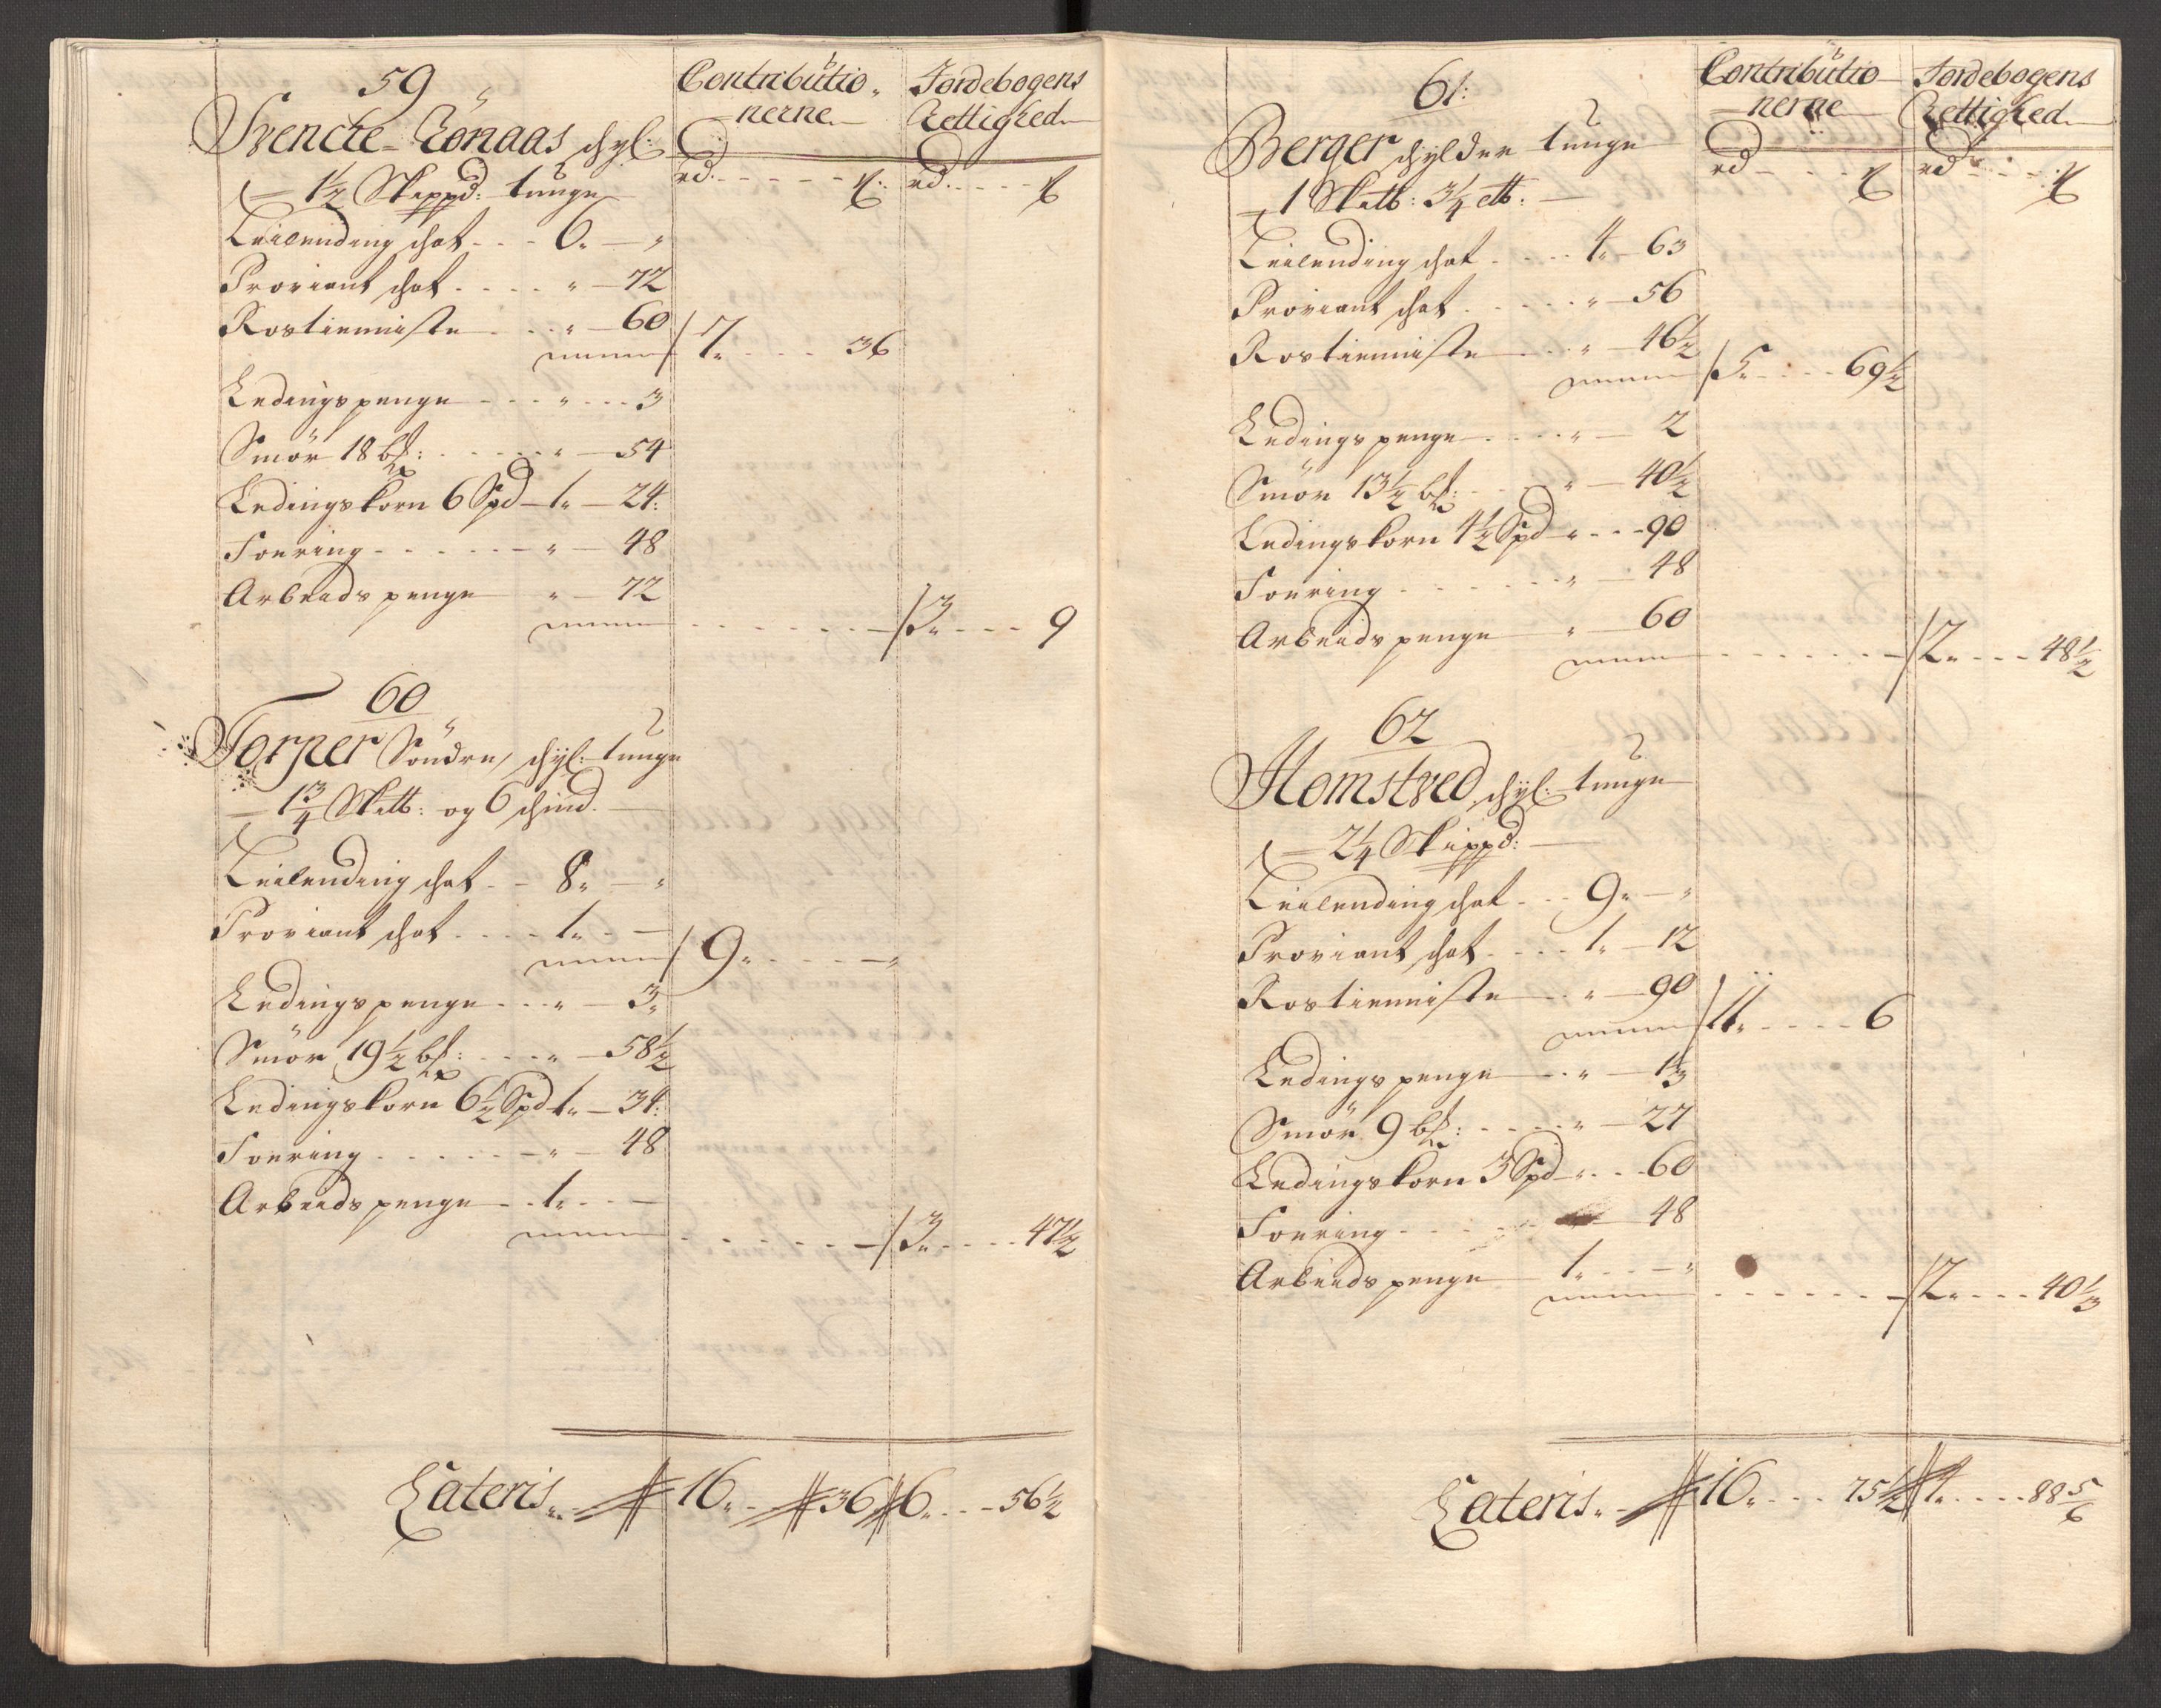 59
Contributio-
nerne
Jordebogens
Rettighed
Svencke-Rönaas schyl:
rd. ß. rd. ß
1½ Skippd: tunge
Leilending schat - - - 6. — "
Proviant schat - - - - " — 72
Rostienniste - - - " — 60
7. - - - 36
Ledingspenge - - - " - - - 3
Smör 18 bß: - - - - " — 54
Ledingskorn 6 Spd — 1. — 24:
Foering - - - - - - " — 48
Arbeidspenge " — 72
- - - - - - 3. - - - 9
60
Torper Söndre, schyl: tunge
— 1¾ Skitt: og 6 schind. —
Leilending schat - - 8. — "
Proviant schat - - - - 1. - —
9. - - - - — "
Ledingspenge - - - " — 3.
Smör 19½ bß: - - - " — 58½
Ledingskorn 6½ Spd 1. — 34:
Foering - - - - - - " — 48
Arbeidspenge - - 1. - - —
- - - - - - 3. - - - - 47½
Lateris. 16. - 36 6. - - - 56½
61:
Contributio
nerne
Jordebogens
Rettighed
Berger schylder tunge
rd - - - ß rd - - - ß
— 1 Skitt: 3¼ ett: —
Leilending schat - - - - 4. — 63
Proviant schat - - - - - " — 56
Rostienniste - - - " — 46½
5. - - - - 69½
Ledingspenge - - - - " — 2
Smör 13½ bß: - - - " — 40½
Ledingskorn 4½ Spd " - - - 90
Foering - - - - - - " — 48
Arbeidspenge " — 60
- - - - - - 2. - - - 48½
62
Homstved schyl: tunge
— 2¼ Skippd: —
Leilending schat - - - 9. — "
Proviant schat - - - - 1. — 12
Rostienniste - - " — 90
11. - - - - 6
Ledingspenge - - " — 1⅓
Smör 9 bß: - - - - " — 27
Ledingskorn 3 Spd " - - - 60
Foering - - - - — 48
Arbeidspenge — 1. - - — "
- - - - - - 2. - - - 40⅓
Lateris. - 16. - - - 75½ 4. - - - - 88 5/6